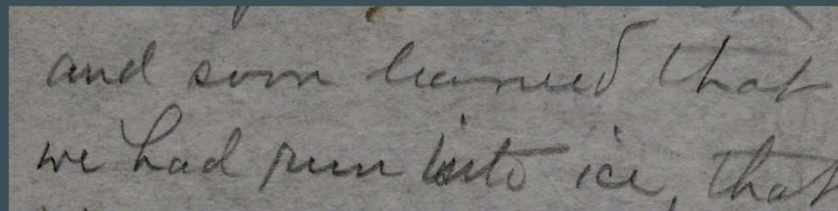 and soon learned that
we had run into ice, that